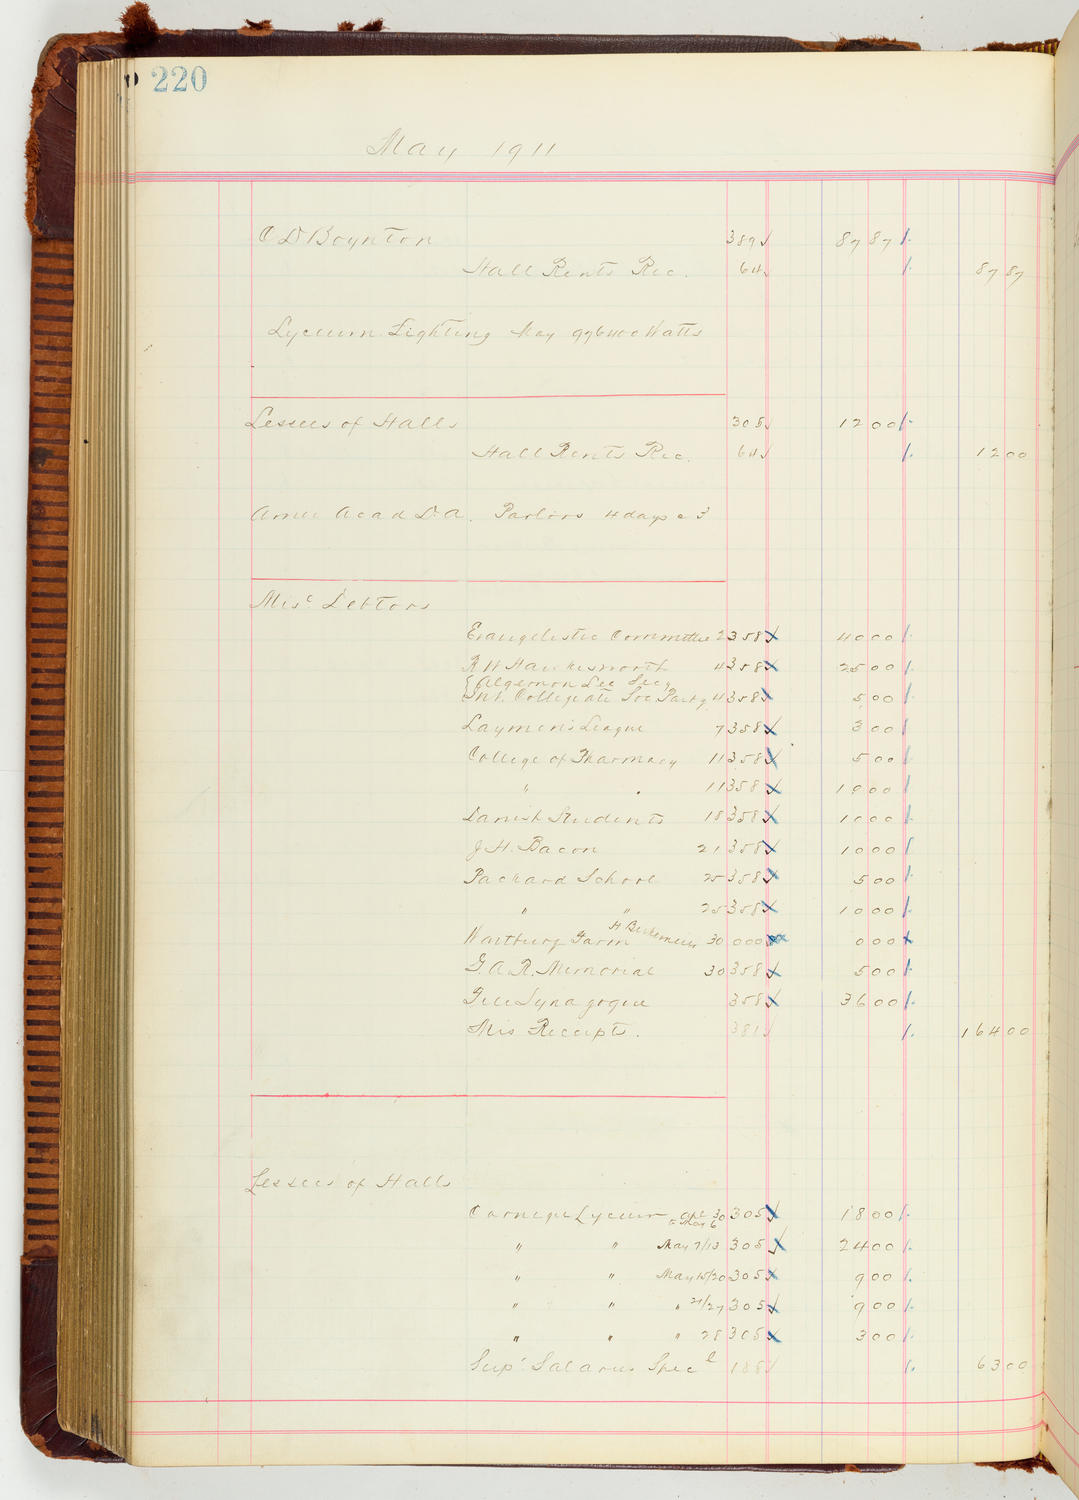 220
May 1911
C D Boynton 389 87 87
Hall Rents Rec. 64 87 87
Lyceum Lighting May 976400 Watts
Lessees of Halls 305 12 00
Hall Rents Rec. 64 12 00
Amer Acad D. A. Parlors 4 days @ 3
Misc Debtors
Evangelistic Committee 2 358 40 00
R W Hawkesworth 4 358 25 00
Algernon Lee Secy
Int. Collegiate Soc Party 4 358 5 00
Laymen's League 7 358 3 00
College of Pharmacy 11 358 5 00
" 11 358 10 00
Danish Students 18 358 10 00
J. H. Bacon 21 358 10 00
Packard School 25 358 5 00
" " 25 358 10 00
Wartburg Farm H 30 000 0 00
G. A. R. Memorial 30 358 5 00
Synagogue 358 36 00
Mis Receipts. 381 164 00
Lessees of Halls
Carnegie Lyceum Apl 30 to May 6 305 18 00
" " May 7/13 305 24 00
" " May 15/20 305 9 00
" " " 21/27 305 9 00
" " " 28 305 3 00
Sup' Salaries Specl 188 63 00